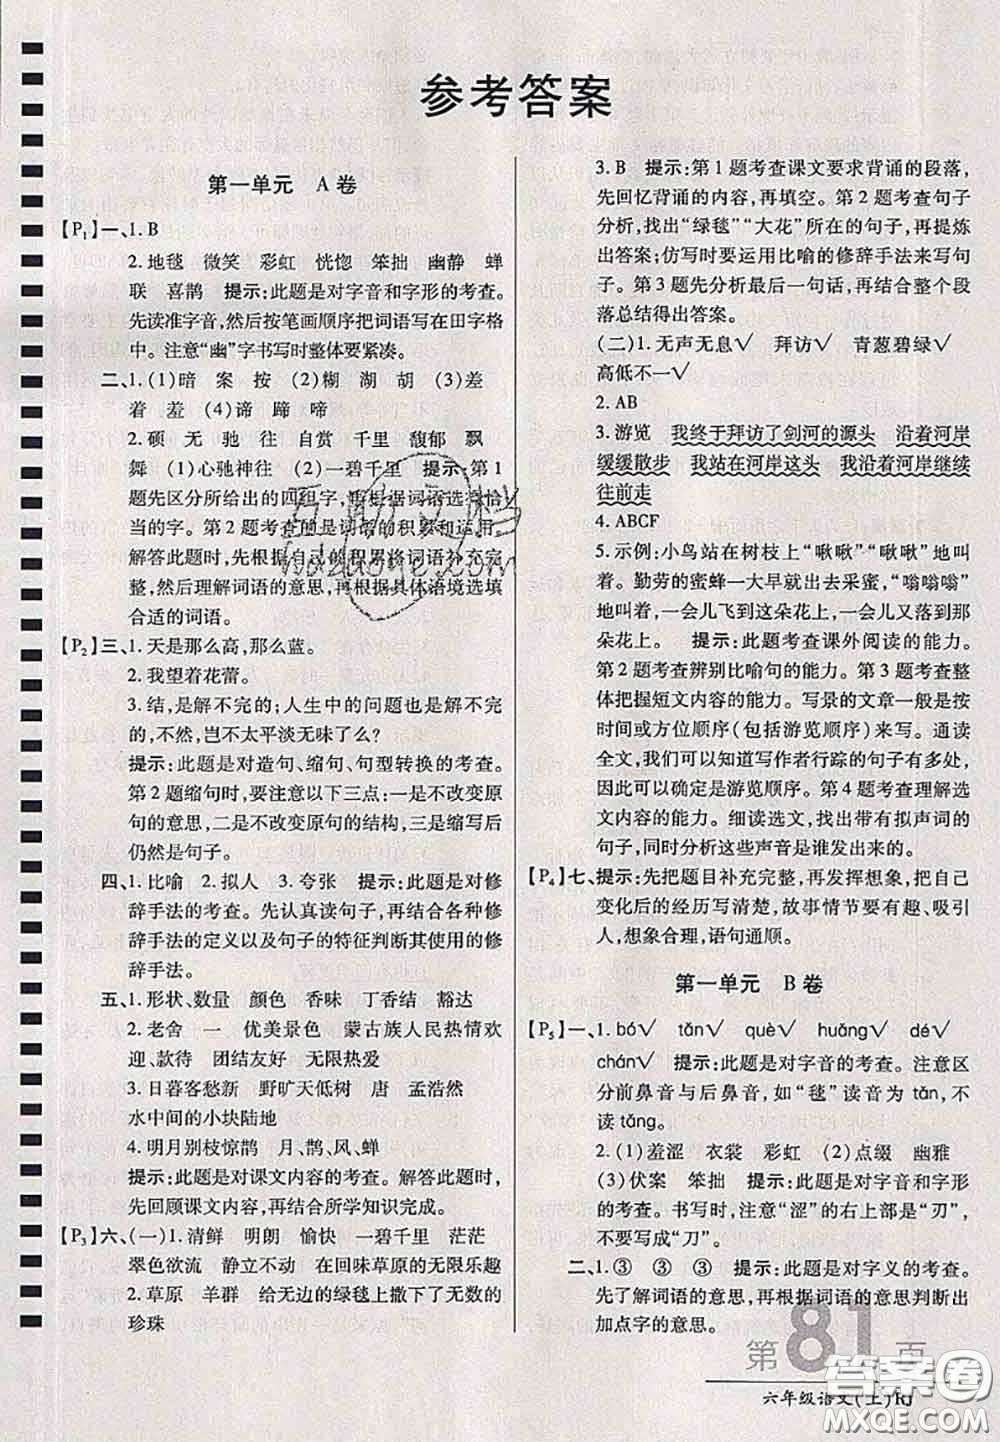 参考答案
第一单元 A卷
【P1】一、1. B
2. 地毯 微笑 彩虹 恍惚 笨拙 幽静 蝉
联 喜鹊 提示:此题是对字音和字形的考查。
先读准字音,然后按笔画顺序把词语写在田字格
中。注意“幽”字书写时整体要紧凑。
二、1. (1)暗 案 按 (2)糊 湖 胡 (3)差
着 羞 (4)谛 蹄 啼
2. 硕 无 驰 往 自赏 千里 馥郁 飘
舞 (1)心驰神往 (2)一碧千里 提示:第1
题先区分所给出的四组字,再根据词语选择恰
当的字。第2题考查的是词语的积累和运用,
解答此题时,先根据自己的积累将词语补充完
整,然后理解词语的意思,再根据具体语境选填
合适的词语。
【P2】三、1. 天是那么高,那么蓝。
2. 我望着花蕾。
3. 结,是解不完的;人生中的问题也是解不完
的,不然,岂不太平淡无味了么?
提示:此题是对造句、缩句、句型转换的考查。
第2题缩句时,要注意以下三点:一是不改变原
句的意思,二是不改变原句的结构,三是缩写后
仍然是句子。
四、1. 比喻 2. 拟人 3. 夸张 提示:此题是对修
辞手法的考查。先认真读句子,再结合各种修
辞手法的定义以及句子的特征判断其使用的修
辞手法。
五、1. 形状、数量 颜色 香味 丁香结 豁达
2. 老舍 一 优美景色 蒙古族人民热情欢
迎、款待 团结友好 无限热爱
3. 日暮客愁新 野旷天低树 唐 孟浩然
水中间的小块陆地
4. 明月别枝惊鹊 月、鹊、风、蝉
提示:此题是对课文内容的考查。解答此题时,
先回顾课文内容,再结合所学知识完成。
【P3】六、(一)1. 清鲜 明朗 愉快 一碧千里 茫茫
翠色欲流 静立不动 在回味草原的无限乐趣
2. 草原 羊群 给无边的绿毯上撒下了无数的
珍珠
3. B 提示:第1题考查课文要求背诵的段落,
先回忆背诵的内容,再填空。第2题考查句子
分析,找出“绿毯”“大花”所在的句子,再提炼
出答案;仿写时要运用比喻的修辞手法来写句
子。第3题先分析最后一句话,再结合整个段
落总结得出答案。
(二)1. 无声无息√ 拜访√ 青葱碧绿√
高低不一√
2. AB
3. 游览 我终于拜访了剑河的源头 沿着河岸
缓缓散步 我站在河岸这头 我沿着河岸继续
往前走
4. ABCF
5. 示例:小鸟站在树枝上“啾啾”“啾啾”地叫
着。勤劳的蜜蜂一大早就出去采蜜,“嗡嗡嗡”
地叫着,一会儿飞到这朵花上,一会儿又落到那
朵花上。 提示:此题考查课外阅读的能力。
第2题考查辨别比喻句的能力。第3题考查整
体把握短文内容的能力。写景的文章一般是按
时间或方位顺序(包括游览顺序)来写。通读
全文,我们可以知道写作者行踪的句子有多处,
因此可以确定是游览顺序。第4题考查理解选
文内容的能力。细读选文,找出带有拟声词的
句子,同时分析这些声音是谁发出来的。
【P4】七、提示:先把题目补充完整,再发挥想象,把自己
变化后的经历写清楚,故事情节要有趣、吸引
人,想象合理,语句通顺。
第一单元 B卷
【P5】一、1. bó√ tǎn√ què√ huǎng√ dé√
chán√ 提示:此题是对字音的考查。注意区
分前鼻音与后鼻音,如“毯”读音为tǎn,不
读tǎng。
2. (1)羞涩 衣裳 彩虹 (2)点缀 幽雅
(3)伏案 笨拙 提示:此题是对字音和字形
的考查。书写时,注意“涩”的右上部是“刃”,
不要写成“刀”。
二、1. ③ ③ ③ 提示:此题是对字义的考查。
先了解词语的意思,再根据词语的意思判断出
加点字的意思。
第81页
六年级语文(上)RJ
互助文档
huzuone.com
答案卷
MXQE.COM